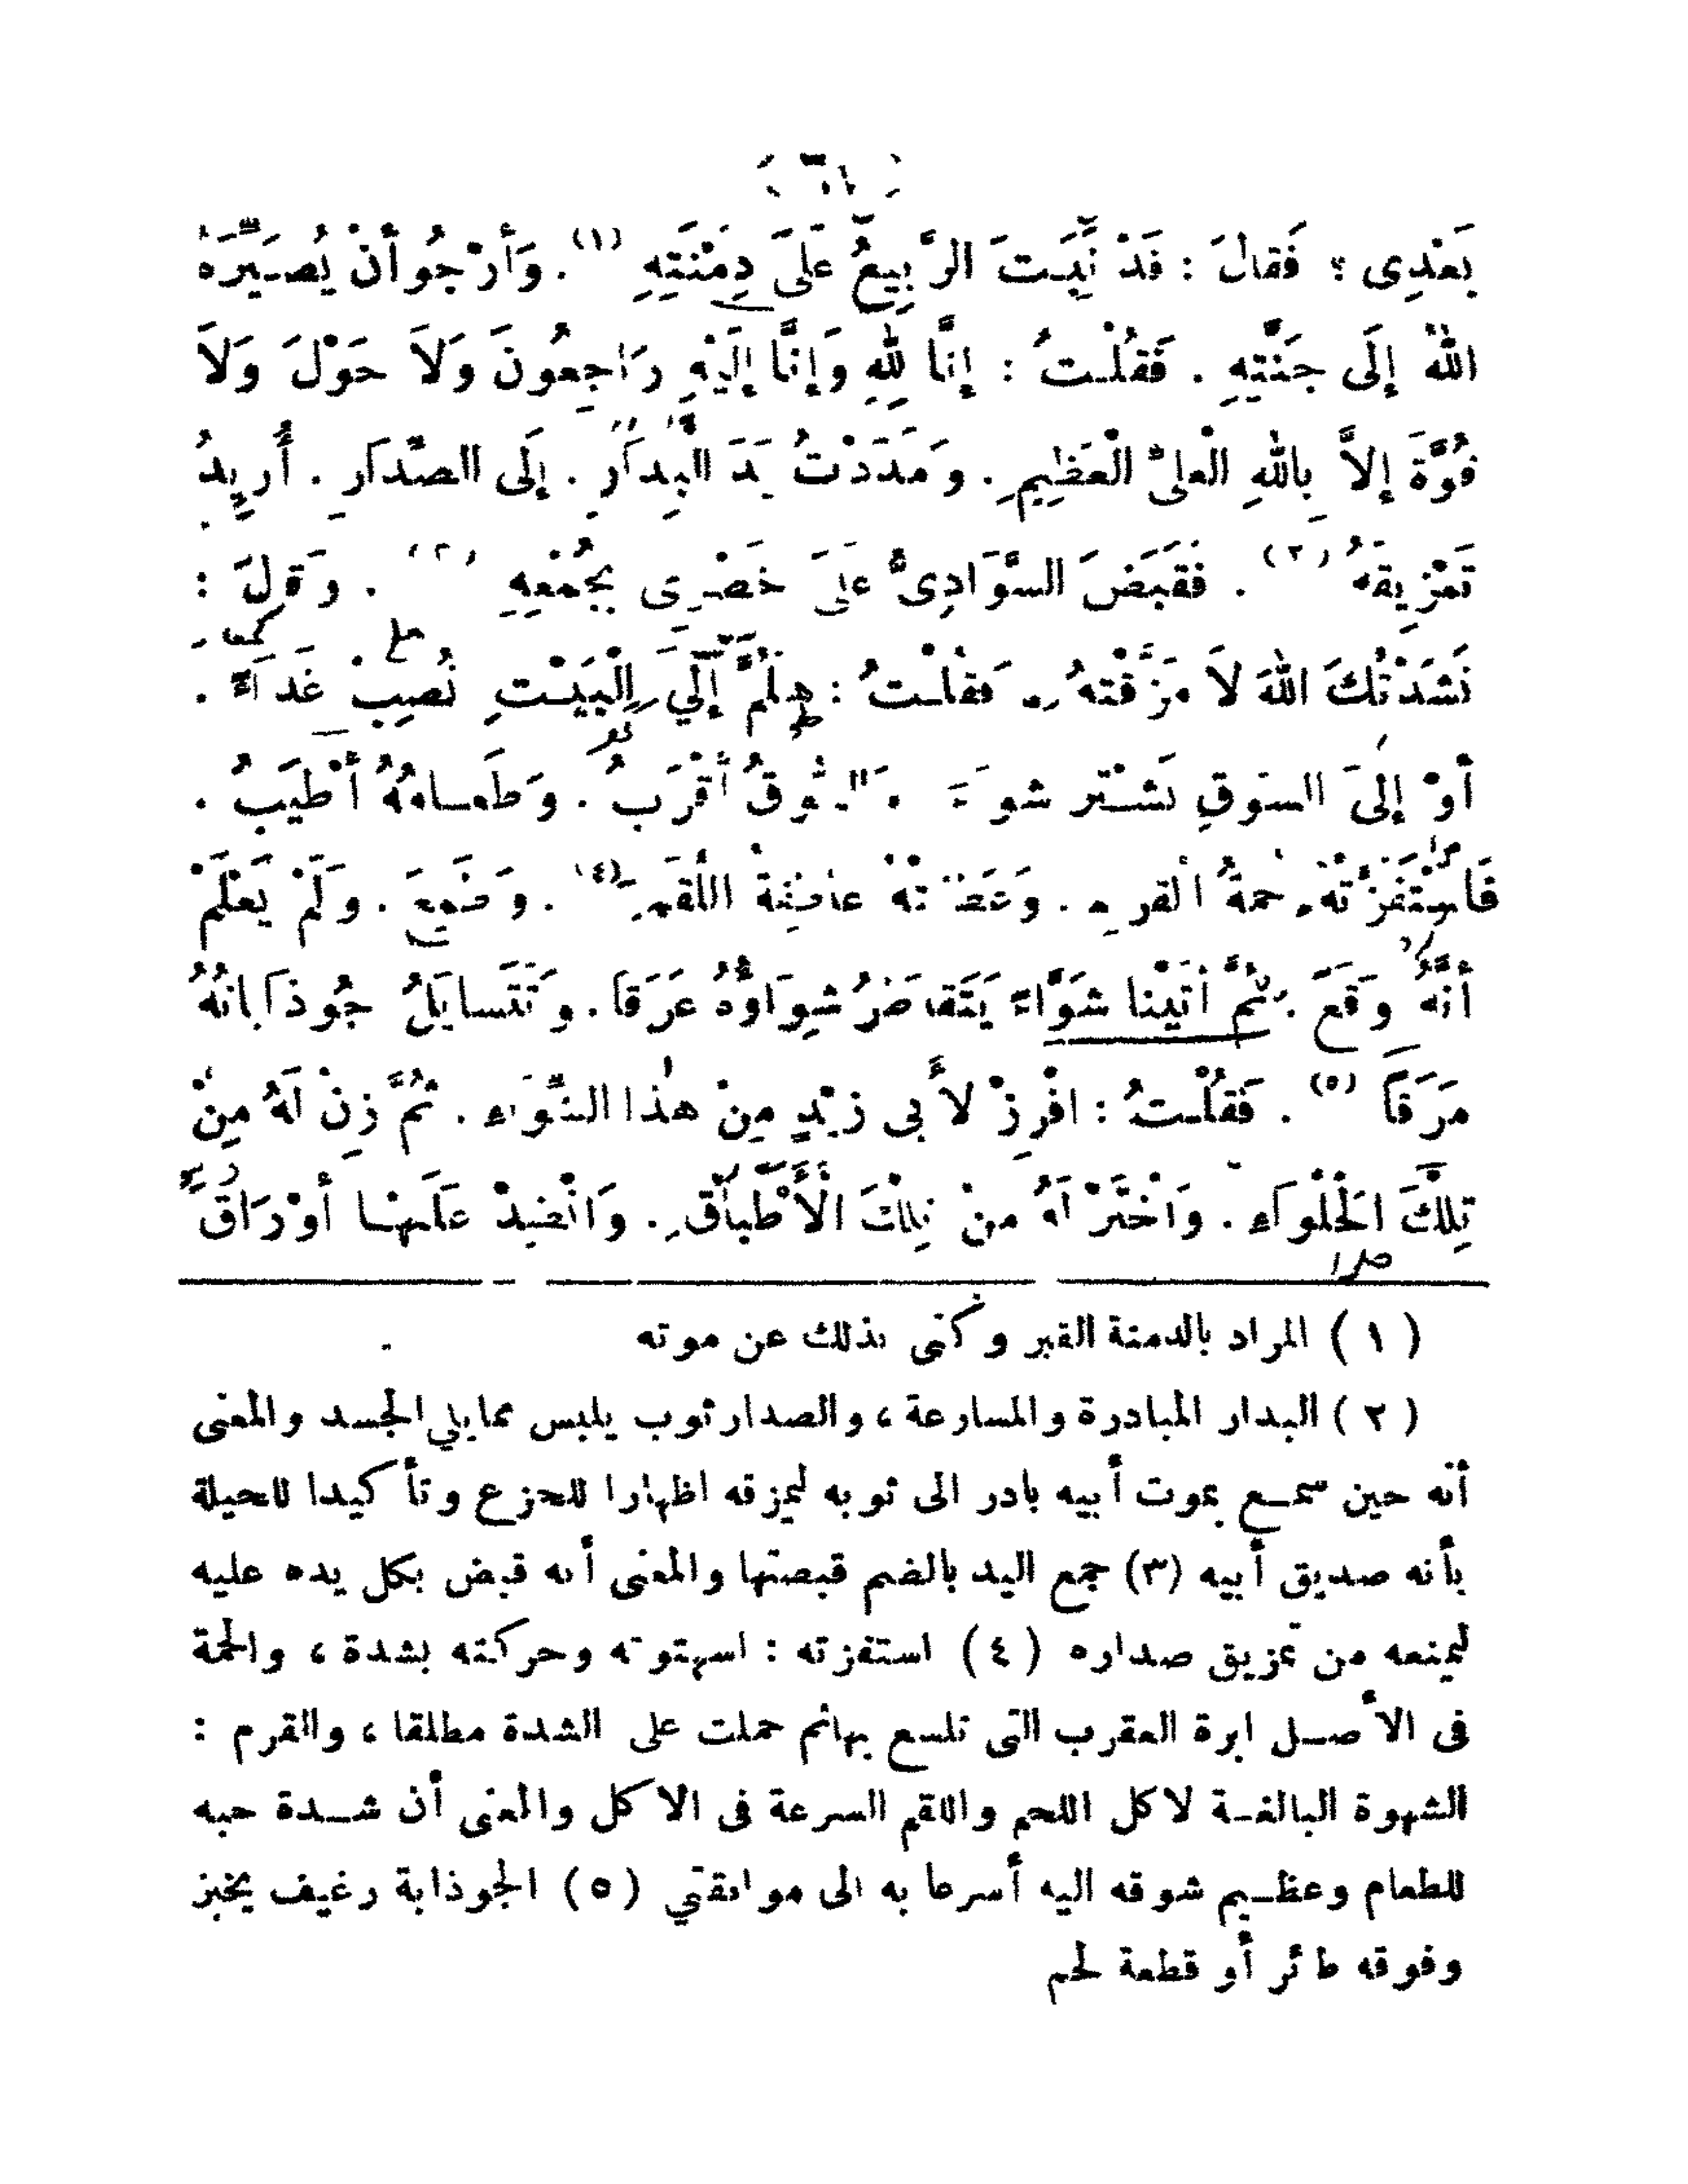 بَعْدِى ؟ فَقالَ : قَدْ نَبَتَ الرَّبِيعُ عَلَى دِمْنَتِهِ (١) . وَأَرْجُو أَنْ يُصَيِّرَهُ
اللهُ إِلَى جَنَّتِهِ . فَقُلْتُ : إِنَّا لِلهِ وَإِنَّا إِلَيْهِ رَاجِعُونَ وَلاَ حَوْلَ وَلاَ
قُوَّةَ إِلاَّ بِاللهِ الْعَلىِّ الْعَظِيمِ . وَمَدَدْتُ يَدَ الْبِدَارِ . إِلَى الصِّدَارِ . أُرِيدُ
تَمْزِيقَهُ (٢) . فَقَبَضَ السَّوَادِىُّ عَلَى خَصْرِى بِجُمْعِهِ (٣) . وَقالَ :
نَشَدْتُكَ اللهَ لاَ مَزَّقْتَهُ . فَقُلْتُ : هَلُمَّ إِلَى الْبَيْتِ نُصِبْ غَدَاءً .
أَوْ إِلَى السُّوقِ نَشْتَرِ شِوَاءً . وَالسُّوقُ أَقْرَبُ . وَطَعامُهُ أَطْيَبُ .
فَاسْتَفَزَّتْهُ حُمَةُ الْقَرَمِ . وَعَطَفَتْهُ عاطِفَةُ اللَّقَمِ (٤) . وَطَمِعَ . وَلَمْ يَعْلَمْ
أَنَّهُ وَقَعَ . ثُمَّ أَتَيْنا شَوَّاءً يَتَقاطَرُ شِوَاؤُهُ عَرَقاً . وَتَتَسايَلُ جُوذَاباتُهُ
مَرَقاً (٥) . فَقُلْتُ : افْرِزْ لأَبِى زَيْدٍ مِنْ هٰذا الشِّوَاءِ . ثُمَّ زِنْ لَهُ مِنْ
تِلْكَ الْحَلْوَاءِ . وَاخْتَرْ لَهُ مِنْ تِلْكَ الْأَطْباقِ . وَانْضِدْ عَلَيْهَا أَوْرَاقَ
( ١ ) المراد بالدمنة القبر وكنى بذلك عن موته
( ٢ ) البدار المبادرة والمسارعة ، والصدار ثوب يلبس مما يلي الجسد والمعنى
أنه حين سمع بموت أبيه بادر الى ثوبه ليمزقه اظهارا للحزع وتأكيدا للحيلة
بأنه صديق أبيه (٣) جمع اليد بالضم قبضتها والمعنى أنه قبض بكل يده عليه
ليمنعه من تمزيق صداره ( ٤ ) استفزته : استهوته وحركته بشدة ، والحمة
فى الأصل ابرة العقرب التى تلسع بها ثم حملت على الشدة مطلقا ، والقرم :
الشهوة البالغة لاكل اللحم واللقم السرعة فى الاكل والمعنى أن شدة حبه
للطعام وعظيم شوقه اليه أسرعا به الى موافقتي ( ٥ ) الجوذابة رغيف يخبز
وفوقه طائر أو قطعة لحم